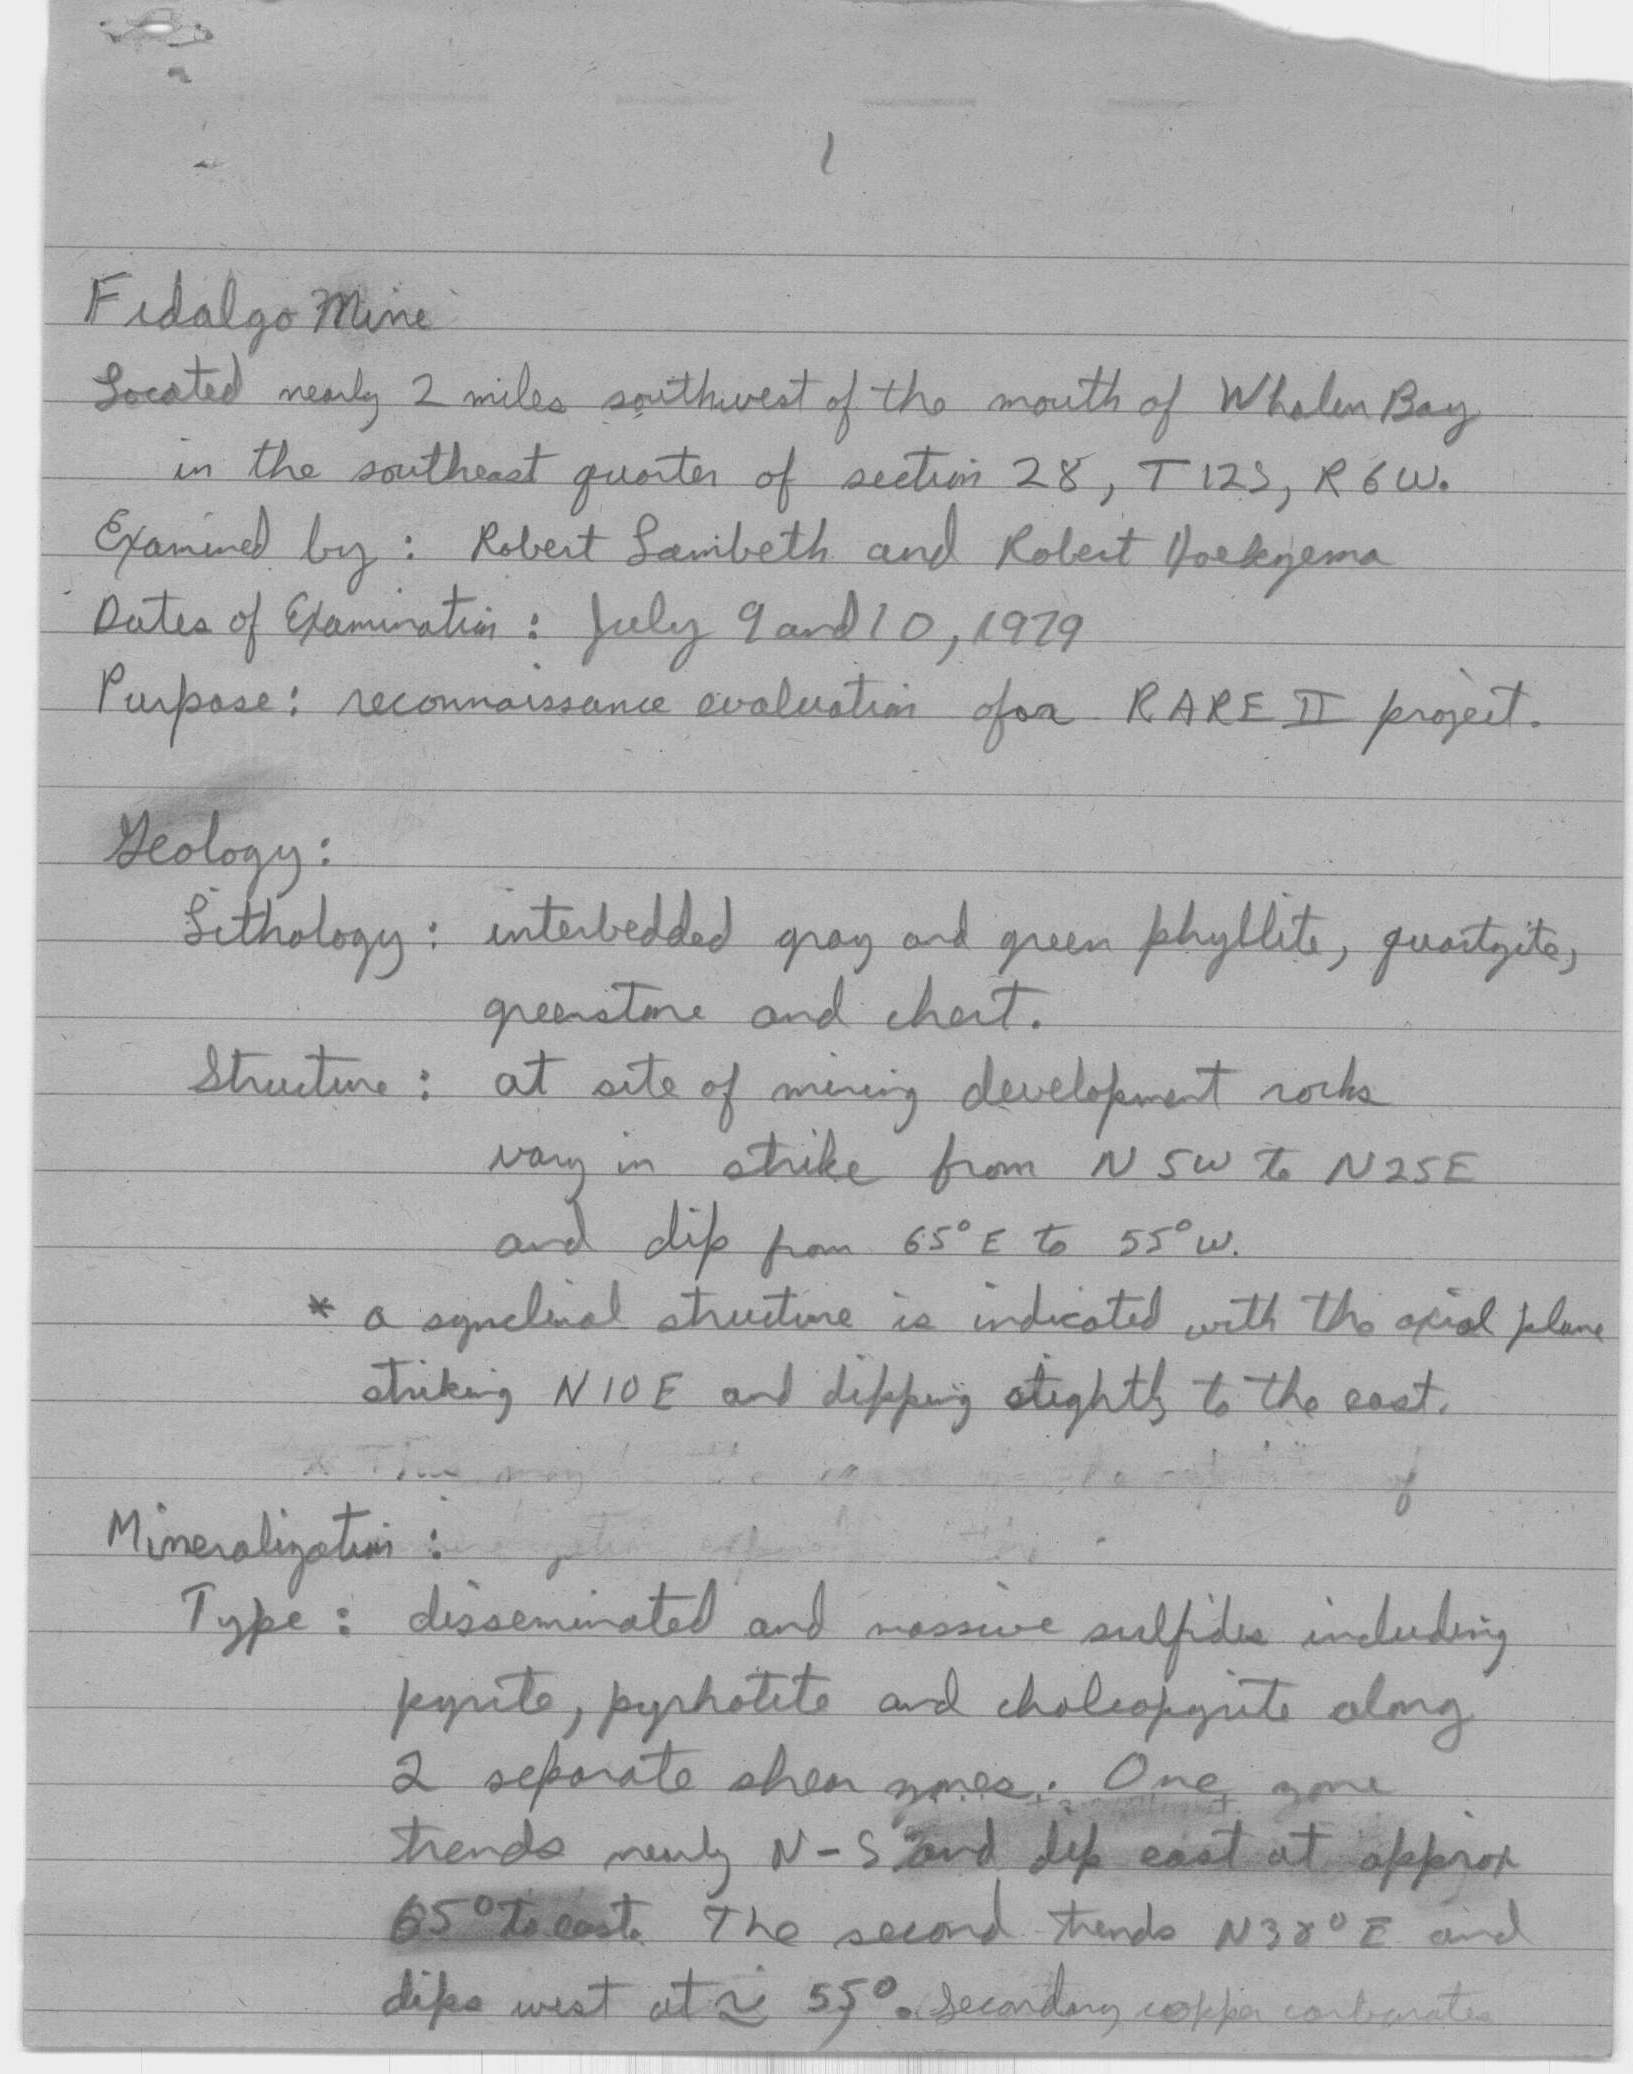 1
Fidalgo Mine
Located nearly 2 miles southwest of the mouth of Whalen Bay
in the southeast quarter of section 28, T 12S, R 6 W.
Examined by: Robert Lambeth and Robert Hoekzema
Dates of Examination: July 9 and 10, 1979
Purpose: reconnaissance evaluation for RARE II project.
Geology:
Lithology: interbedded gray and green phyllite, quartzite,
greenstone and chert.
Structure: at site of mining development rocks
vary in strike from N 5W to N25E
and dip from 65°E to 55°W.
* a synclinal structure is indicated with the axial plane
striking N10E and dipping slightly to the east.
* This may of
Mineralization:
Type: disseminated and massive sulfides including
pyrite, pyrhotite and chalcopyrite along
2 separate shear zones. One zone
trends nearly N-S and dip east at approx
65° to east. The second trends N38°E and
dips west at ≈ 55°. Secondary copper carbonates